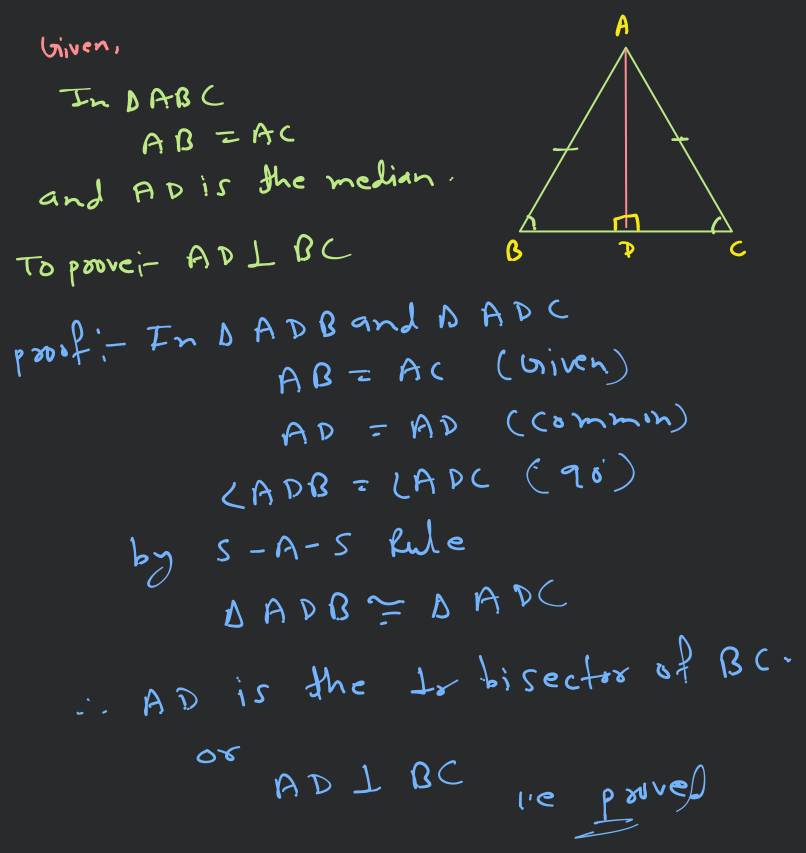 Given,
In Δ ABC
AB = AC
and AD is the median.
To prove:- AD ⊥ BC
A
B
D
C
proof:- In Δ ADB and Δ ADC
AB = AC (Given)
AD = AD (common)
∠ADB = ∠ADC (90°)
by S-A-S Rule
Δ ADB ≅ Δ ADC
∴ AD is the ⊥r bisector of BC.
or
AD ⊥ BC i'e proved